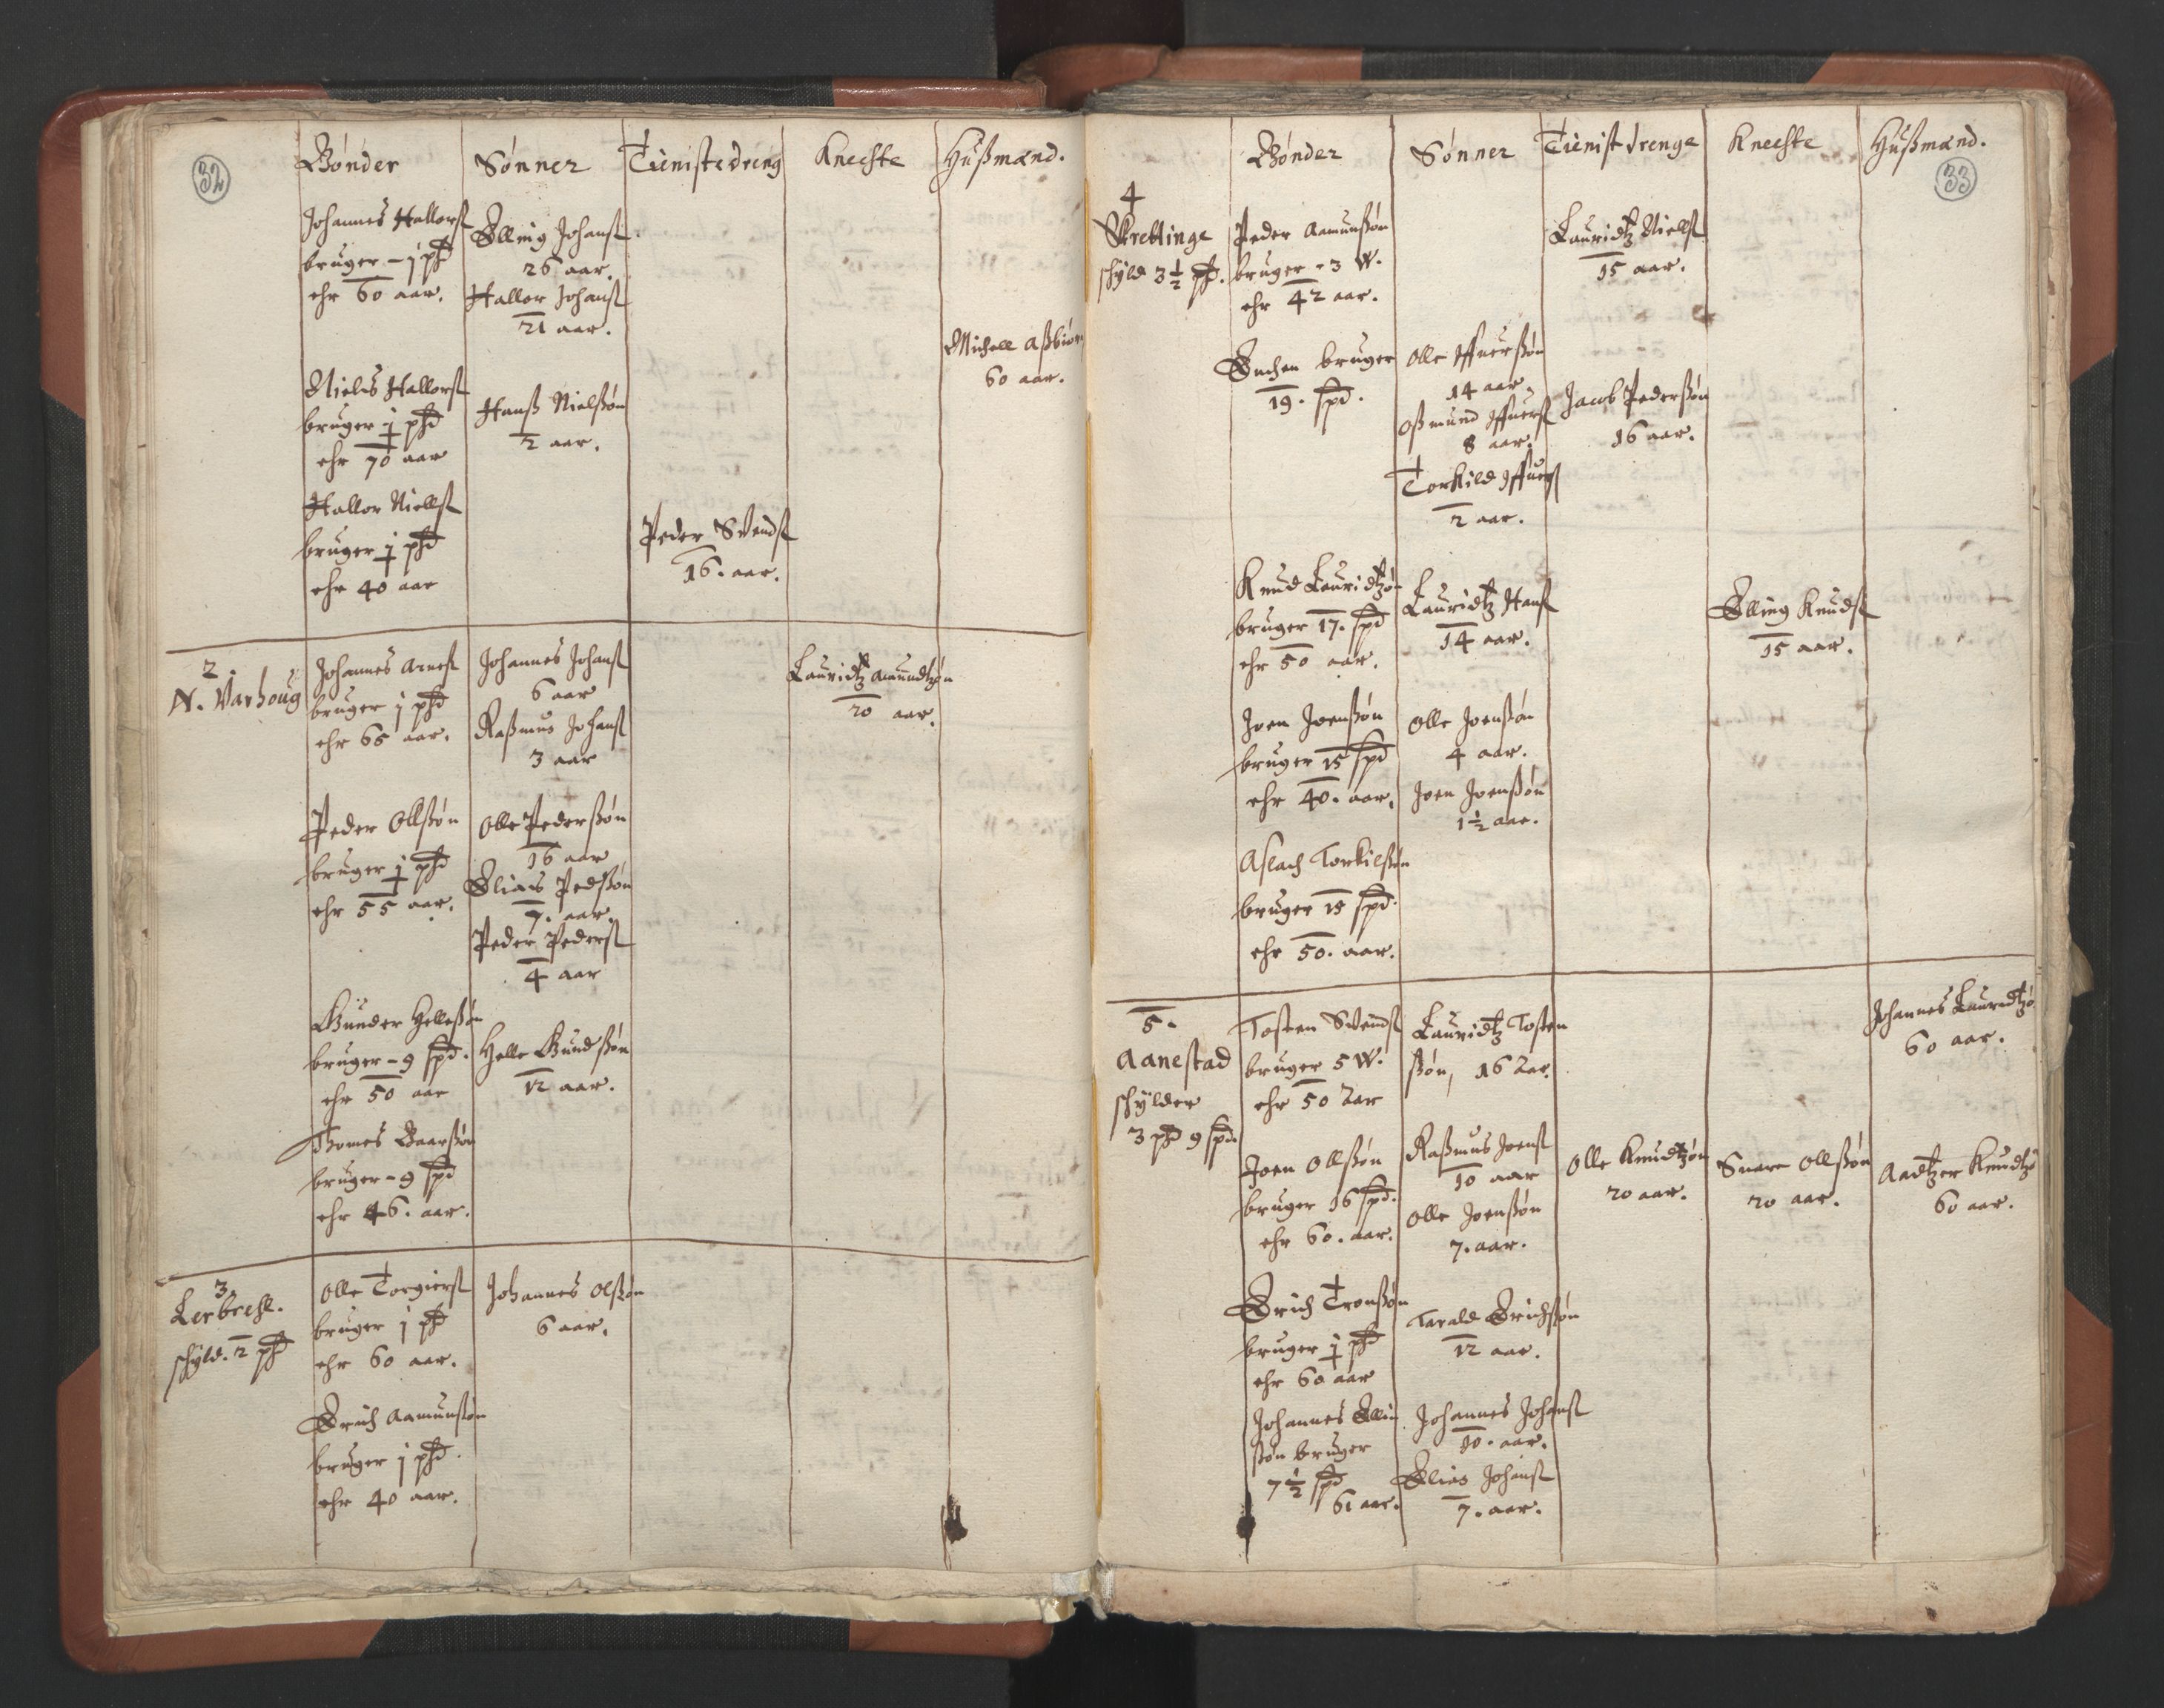 32
Bønder
Sønner
Tienistedreng
Knechte
Hußmænd.
Johannes Hallorß
bruger - j phd
ehr 60 aar.
Elling Johanß
26 aar.
Hallor Johanß
21 aar.
Michell Aßbiørn
60 aar.
Niels Hallorß
bruger j phd
ehr 70 aar
Hanß Nielßøn
2 aar.
Hallor Nielß
bruger j phd
ehr 40 aar
Peder Svendß
16. aar.
2.
N. Varhoug
Johannes Arneß
bruger j phd
ehr 66 aar.
Johannes Johanß
6 aar
Raßmus Johanß
3 aar
Lauridtz Amundtzøn
20 aar.
Peder Ollßøn
bruger j phd
ehr 55 aar.
Olle Pederßøn
16 aar
Elias Pedßøn
7. aar.
Peder Pederß
4 aar
Gunder Helleßøn
bruger - 9 spd.
ehr 50 aar
Helle Gundßøn
12 aar.
Thomes Baarßøn
bruger - 9 spd
ehr 46. aar.
3.
Lerbrech.
schyld. 2 phd
Olle Torgierß
bruger j phd
ehr 60 aar.
Johannes Olßøn
6 aar.
Erich Aamunßøn
bruger j phd.
ehr 40 aar.
33
Bønder
Sønner
Tienist drenge
Knechte
Hußmænd.
4
Skretlinge
schyld 3½ phd.
Peder Aamunßøn
bruger - 3 W.
ehr 42 aar.
Lauridtz Nielß
15 aar.
Enchen bruger
19. spd.
Olle Iffuerßøn
14 aar.
Oßmund Iffuerß
8 aar.
Torkild Iffuerß
2 aar.
Jacob Pederßøn
16 aar.
Knud Lauridtzøn
bruger 17. spd
ehr 50 aar.
Lauridtz Hanß
14 aar.
Elling Knudß
15 aar.
Joen Joenßøn
bruger 15 spd
ehr 40. aar.
Olle Joenßøn
4 aar.
Joen Joenßøn
1½ aar.
Aslach Torkilßøn
bruger 15 spd.
ehr 50. aar.
5.
Aanestad
schylder
3 phd 9 spd.
Tosten Svendß
bruger 5 W.
ehr 50 Aar
Lauridtz Tosten
ßøn, 16 Aar.
Johannes Lauridtzø
60 aar.
Joen Ollßøn
bruger 16 spd.
ehr 60. aar.
Raßmus Joenß
10 aar
Olle Joenßøn
7. aar.
Olle Knudtzøn
20 aar.
Snare Ollßøn
20 aar.
Aadtzer Knudtzø
60 aar.
Erich Tronßøn
bruger j phd
ehr 60 aar
Tarald Erichßøn
12 aar.
Johannes Ellin
ßøn bruger
7½ spd
61 aar.
Johannes Johanß
10. aar.
Elias Johanß
7. aar.